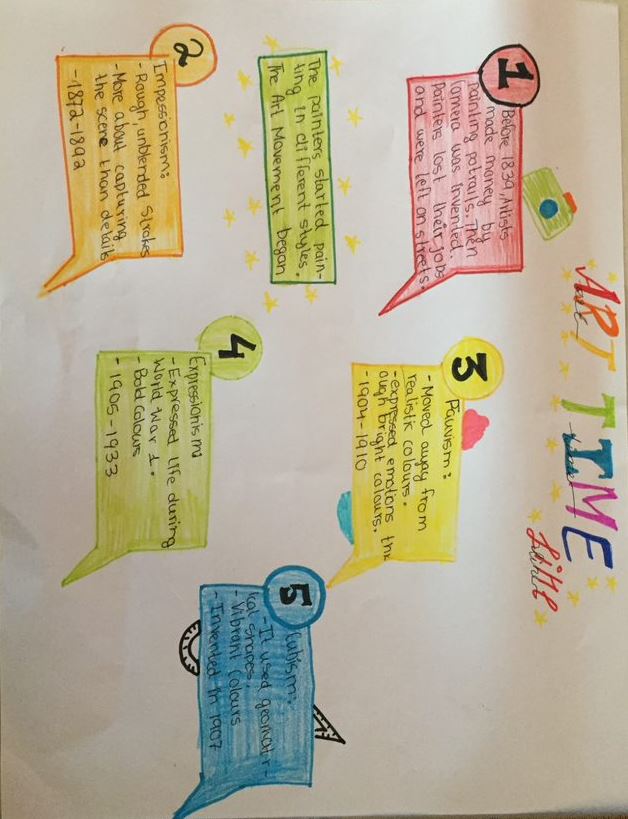 ART TIME
Line
1
Before 1839, Artists
made money by
painting potraits. Then
camera was invented.
Painters lost their jobs
and were left on streets.
The painters started pain-
ting in different styles.
The Art Movement began
2
Impressionism:
- Rough, unblended Strokes
- More about capturing
the scene than details
- 1872-1892
3
Fauvism:
- Moved away from
realistic colours.
- expressed emotions thr
ough bright colours.
- 1904-1910
4
Expressionism
- Expressed life during
World War 1.
- Bold Colours
- 1905-1933
5
Cubism.
- It used geometr-
ical shapes.
- Vibrant Colours
- Invented in 1907